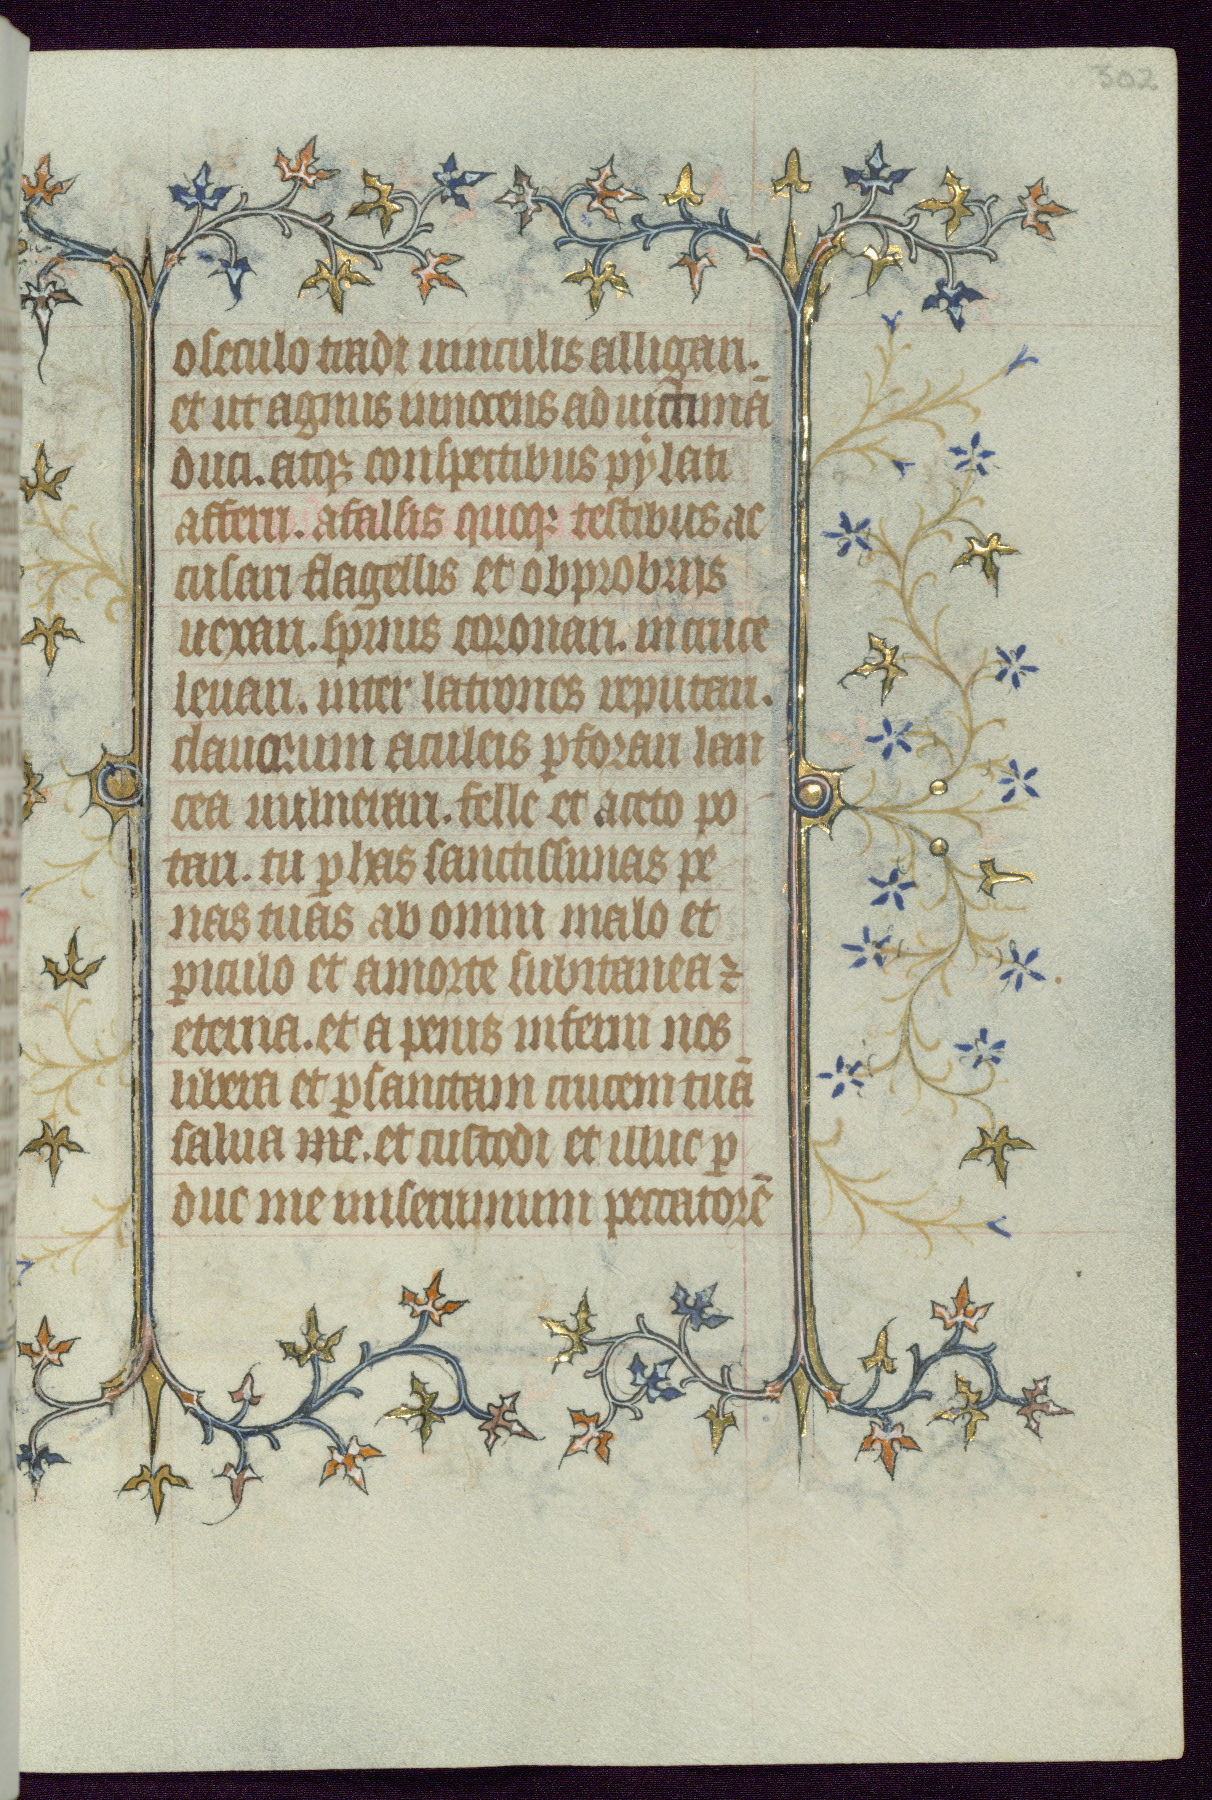 302
o seculo tradi uinculis alligari.
et ut agnus innocens ad uictimā
duci. atqꝫ conspectibus pẏlati
afferri. a falsis quoqꝫ testibus ac
cusari flagellis et obprobrijs
uexari. spinis coronari. in cruce
leuari. inter latrones reputari.
clauorum aculeis ꝑforari lan
cea uulnerari. felle et aceto po
tari. tu ꝑ has sanctissimas pe
nas tuas ab omni malo et
ꝑiculo et a morte subitanea ⁊
eterna. et a penis inferni nos
libera et ꝑ sanctam crucem tuā
salua me. et custodi et illuc ꝑ
duc me miserrimum peccatorē